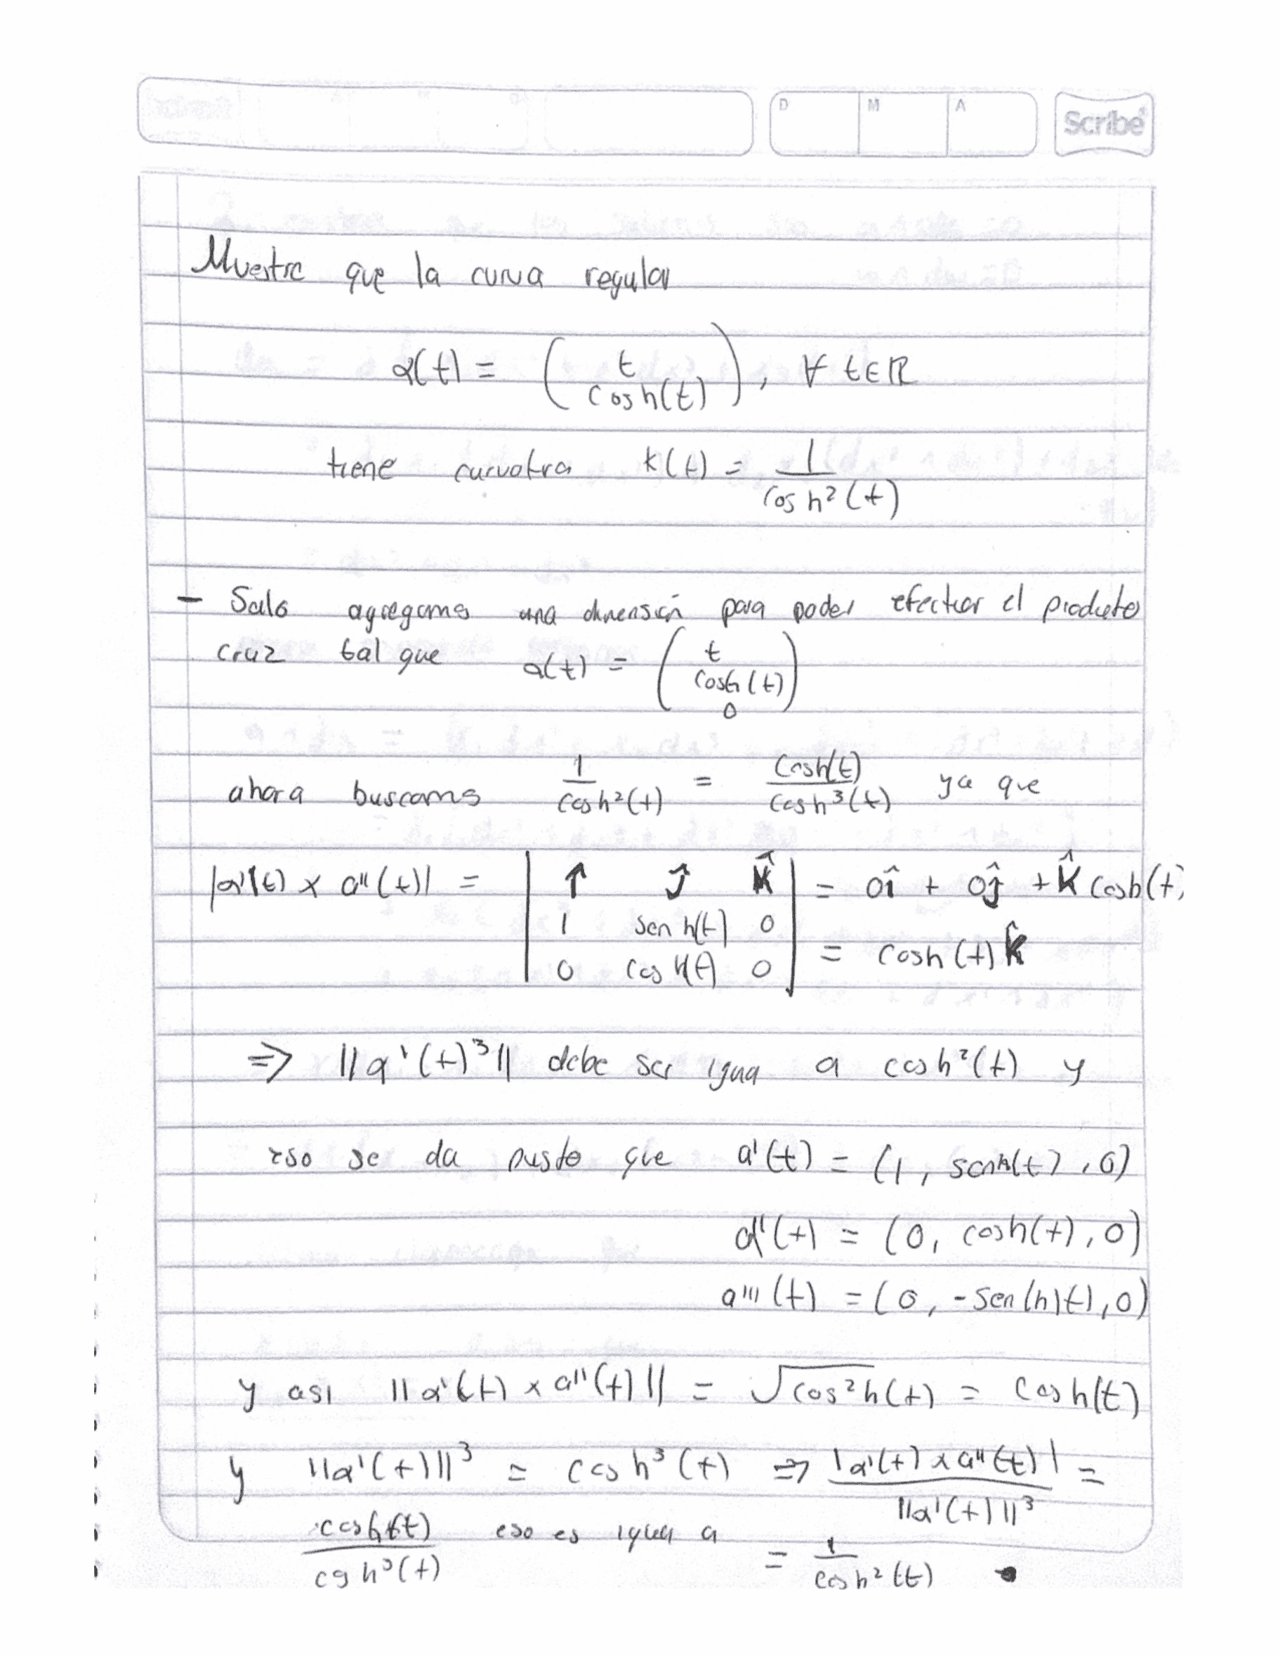 D M A Scribe
Muestre que la curva regular
α(t) = ( t cosh(t) ), ∀ t∈ℝ
tiene curvatra k(t) = 1 / cosh²(t)
- Solo agregams una dimensión para poder efectuar el producto
cruz tal que α(t) = ( t cosh(t) 0 )
ahora buscams 1 / cosh²(t) = cosh(t) / cosh³(t) ya que
|α'(t) x α''(t)| = | î ĵ k̂ 1 senh(t) 0 0 cosh(t) 0 | = 0î + 0ĵ + k̂ cosh(t)
= cosh(t) k̂
=> ||α'(t)³|| debe ser igua a cosh²(t) y
eso se da pusto que α'(t) = (1, senh(t), 0)
α''(t) = (0, cosh(t), 0)
α'''(t) = (0, -sen(h)t), 0)
y asi ||α'(t) x α''(t)|| = √cos²h(t) = cosh(t)
y ||α'(t)||³ = cosh³(t) => |α'(t) x α''(t)| / ||α'(t)||³ =
cosh(t) / cosh³(t) eso es igual a = 1 / cosh²(t)